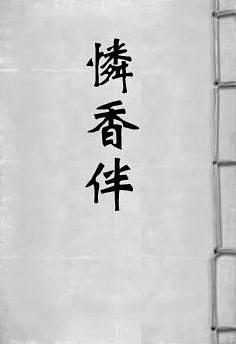 憐香伴